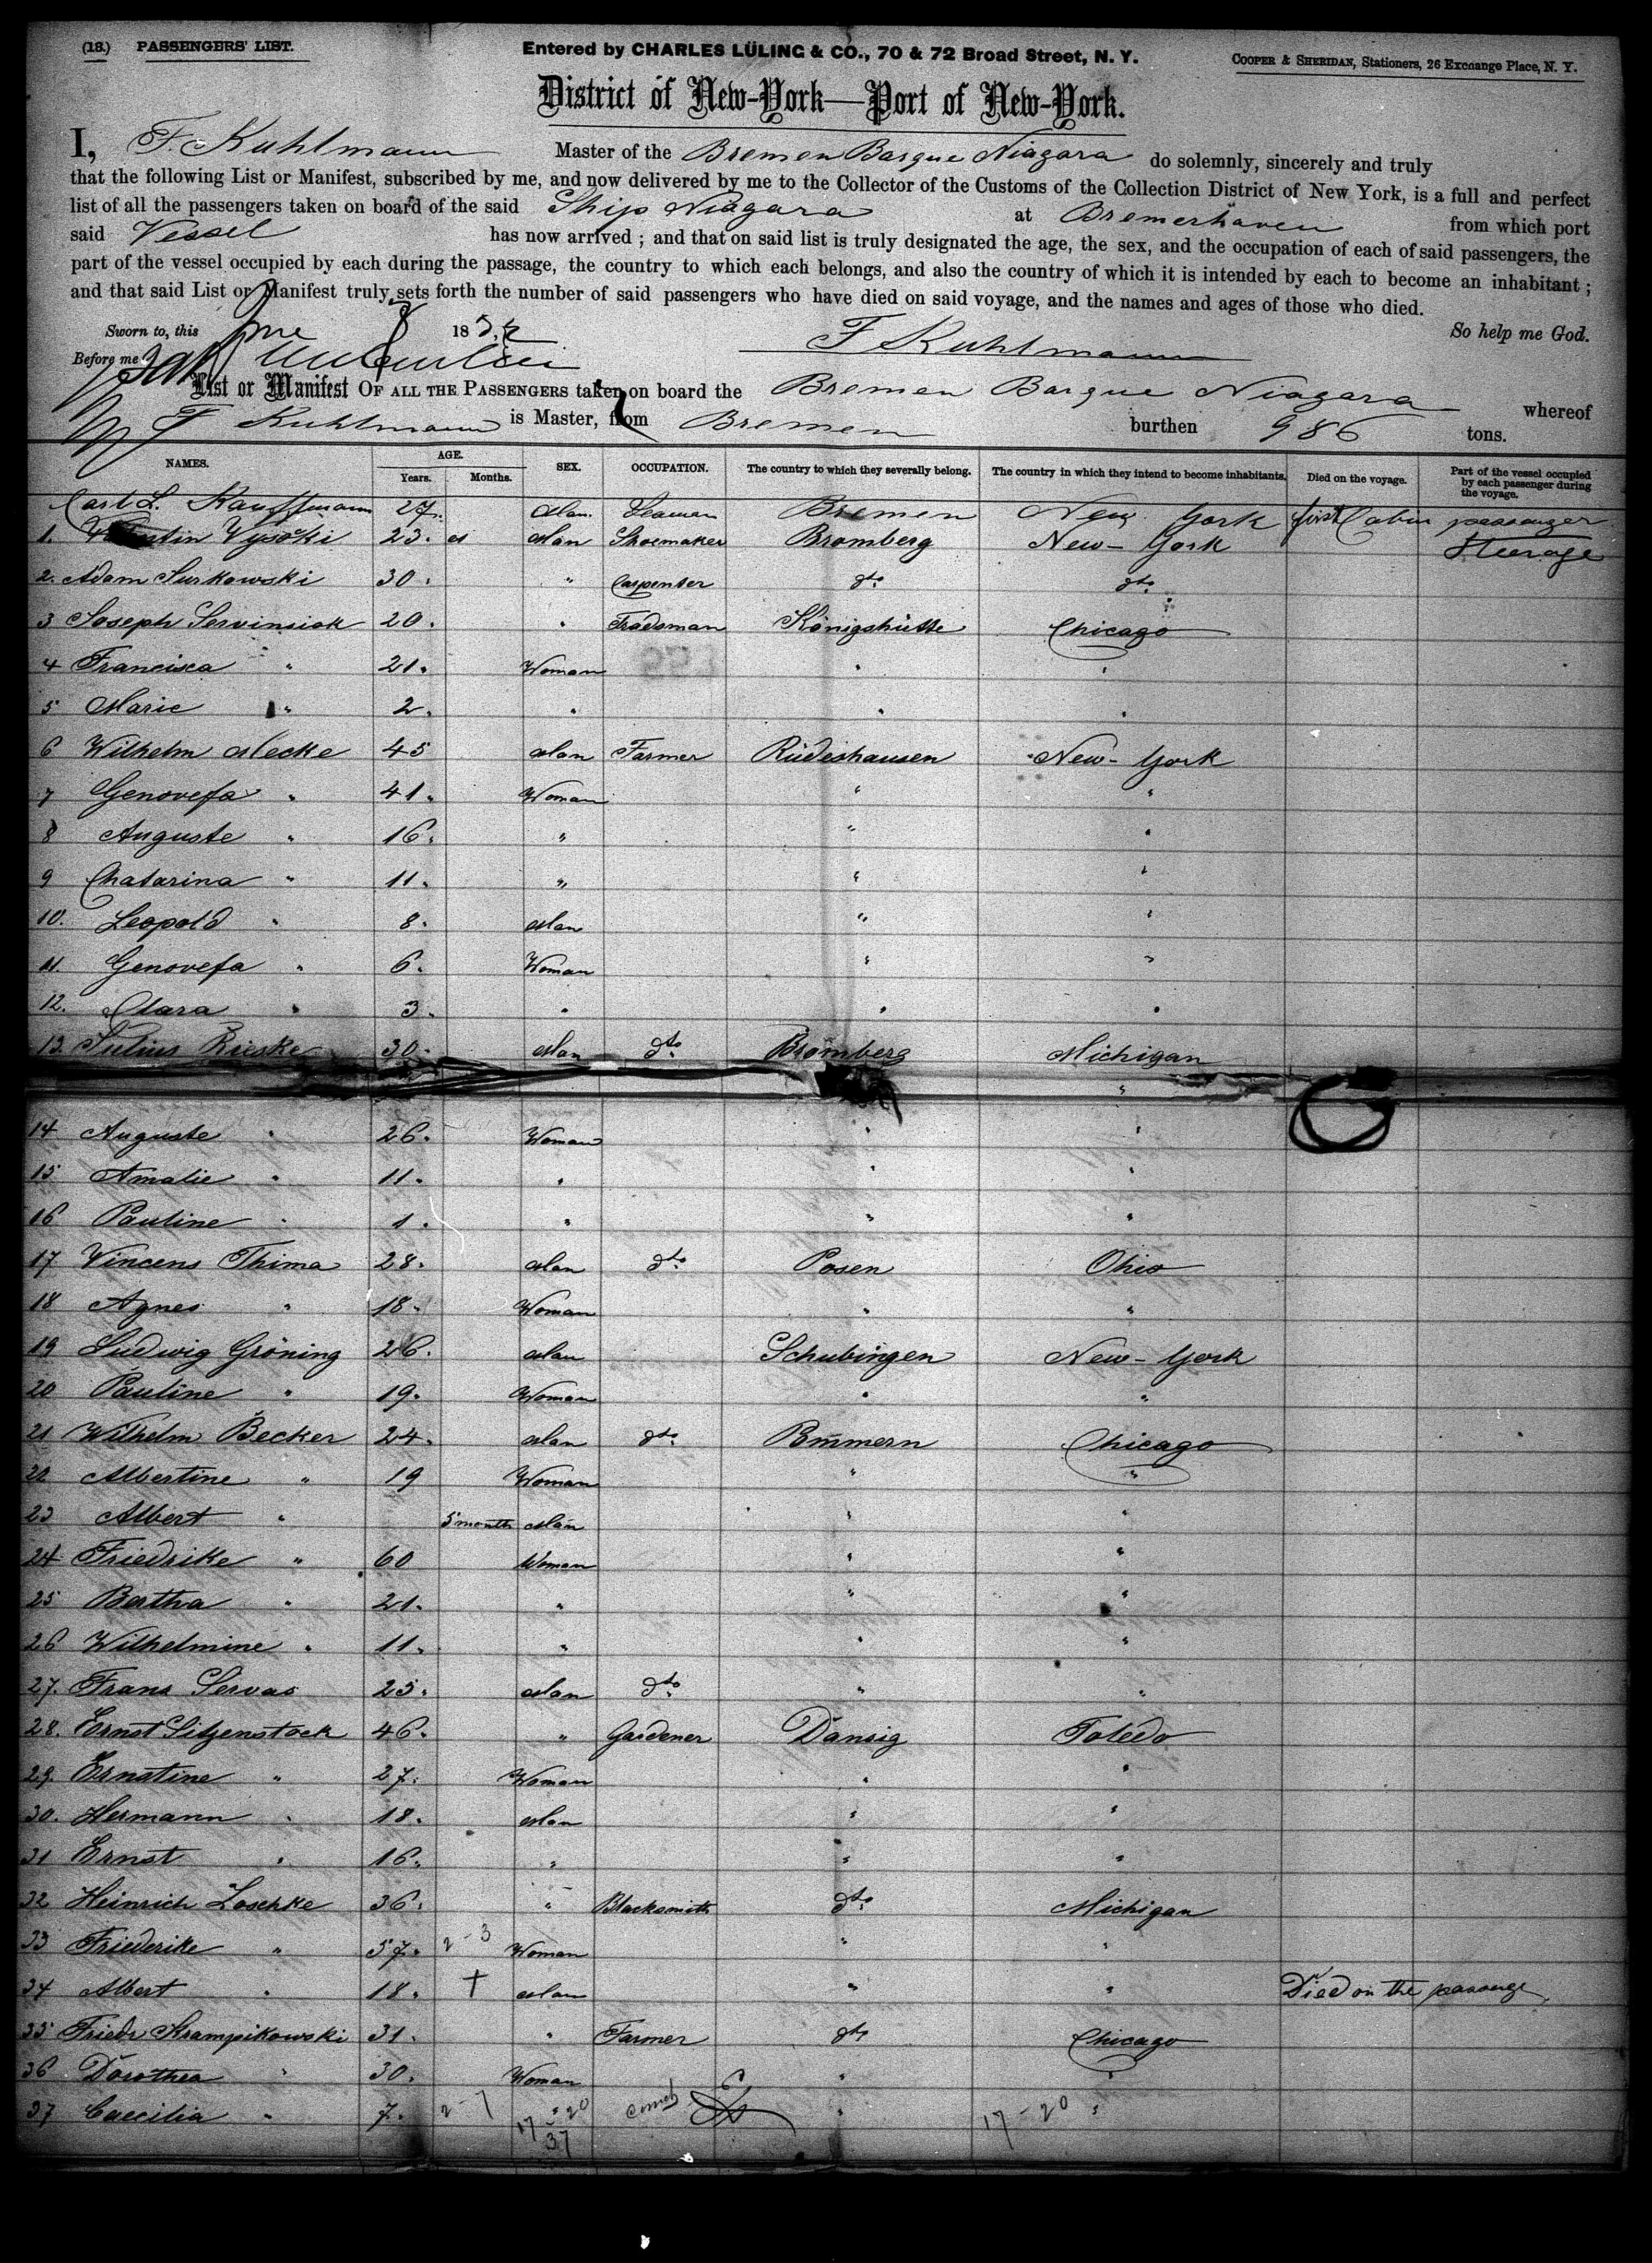 (18.) PASSENGERS' LIST. Entered by CHARLES LÜLING & CO., 70 & 72 Broad Street, N. Y. COOPER & SHERIDAN, Stationers, 26 Exchange Place, N. Y.
District of New-York—Port of New-York.
I, F. Kuhlmann Master of the Bremen Barque Niagara do solemnly, sincerely and truly
that the following List or Manifest, subscribed by me, and now delivered by me to the Collector of the Customs of the Collection District of New York, is a full and perfect
list of all the passengers taken on board of the said Ship Niagara at Bremerhaven from which port
said Vessel has now arrived ; and that on said list is truly designated the age, the sex, and the occupation of each of said passengers, the
part of the vessel occupied by each during the passage, the country to which each belongs, and also the country of which it is intended by each to become an inhabitant ;
and that said List or Manifest truly sets forth the number of said passengers who have died on said voyage, and the names and ages of those who died.
Sworn to, this June 8 18 F Kuhlmann So help me God.
Before me
List or Manifest OF ALL THE PASSENGERS taken on board the Bremen Barque Niagara whereof
F Kuhlmann is Master, from Bremen burthen 986 tons.
NAMES. AGE. Years. Months. SEX. OCCUPATION. The country to which they severally belong. The country in which they intend to become inhabitants. Died on the voyage. Part of the vessel occupied by each passenger during the voyage.
Carl L. Kauffmann 27. Man. Seaman Bremen New York first Cabin passenger
1. Vysotki 23. Man Shoemaker Bromberg New-York Steerage
2. Adam Surkowski 30. " Carpenter dto dto
3 Joseph Servinsiak 20. " Tradsman Königshütte Chicago
4 Francisca " 21. Woman " "
5 Marie " 2. " " "
6 Wilhelm Mecke 45 Man Farmer Rüdeshausen New-York
7 Genovefa " 41. Woman " "
8 Auguste " 16. " " "
9 Chatarina " 11. " " "
10. Leopold " 8. Man " "
11. Genovefa " 6. Woman " "
12. Clara " 3. " " "
13 Julius Rieske 30. Man dto Bromberg Michigan
14 Auguste " 26. Woman " "
15 Amalie " 11. " " "
16 Pauline " 1. " " "
17 Vincens Thima 28. Man dto Posen Ohio
18 Agnes " 18. Woman " "
19 Ludwig Gröning 26. Man Schubingen New-York
20 Pauline " 19. Woman " "
21 Wilhelm Becker 24. Man dto Pommern Chicago
22 Albertine " 19 Woman " "
23 Albert " 5 month Man " "
24 Friedrike " 60 Woman " "
25 Bertha " 21. " " "
26 Wilhelmine " 11. " " "
27. Frans Servas 25. Man dto " "
28. Ernst Sitzenstock 46. " Gardener Dansig Toledo
29. Ernstine " 27. Woman " "
30. Hermann " 18. Man " "
31 Ernst " 16. " " "
32 Heinrich Loschke 36. " Blacksmith dto Michigan
33 Friederike " 57. 2-3 Woman " "
34 Albert " 18. † Man " " Died on the passage
35 Friedr Krampikowski 31. " Farmer dto Chicago
36 Dorothea " 30. Woman " "
37 Caecilia " 7. 2-7 " " "
17-20 17-20
37